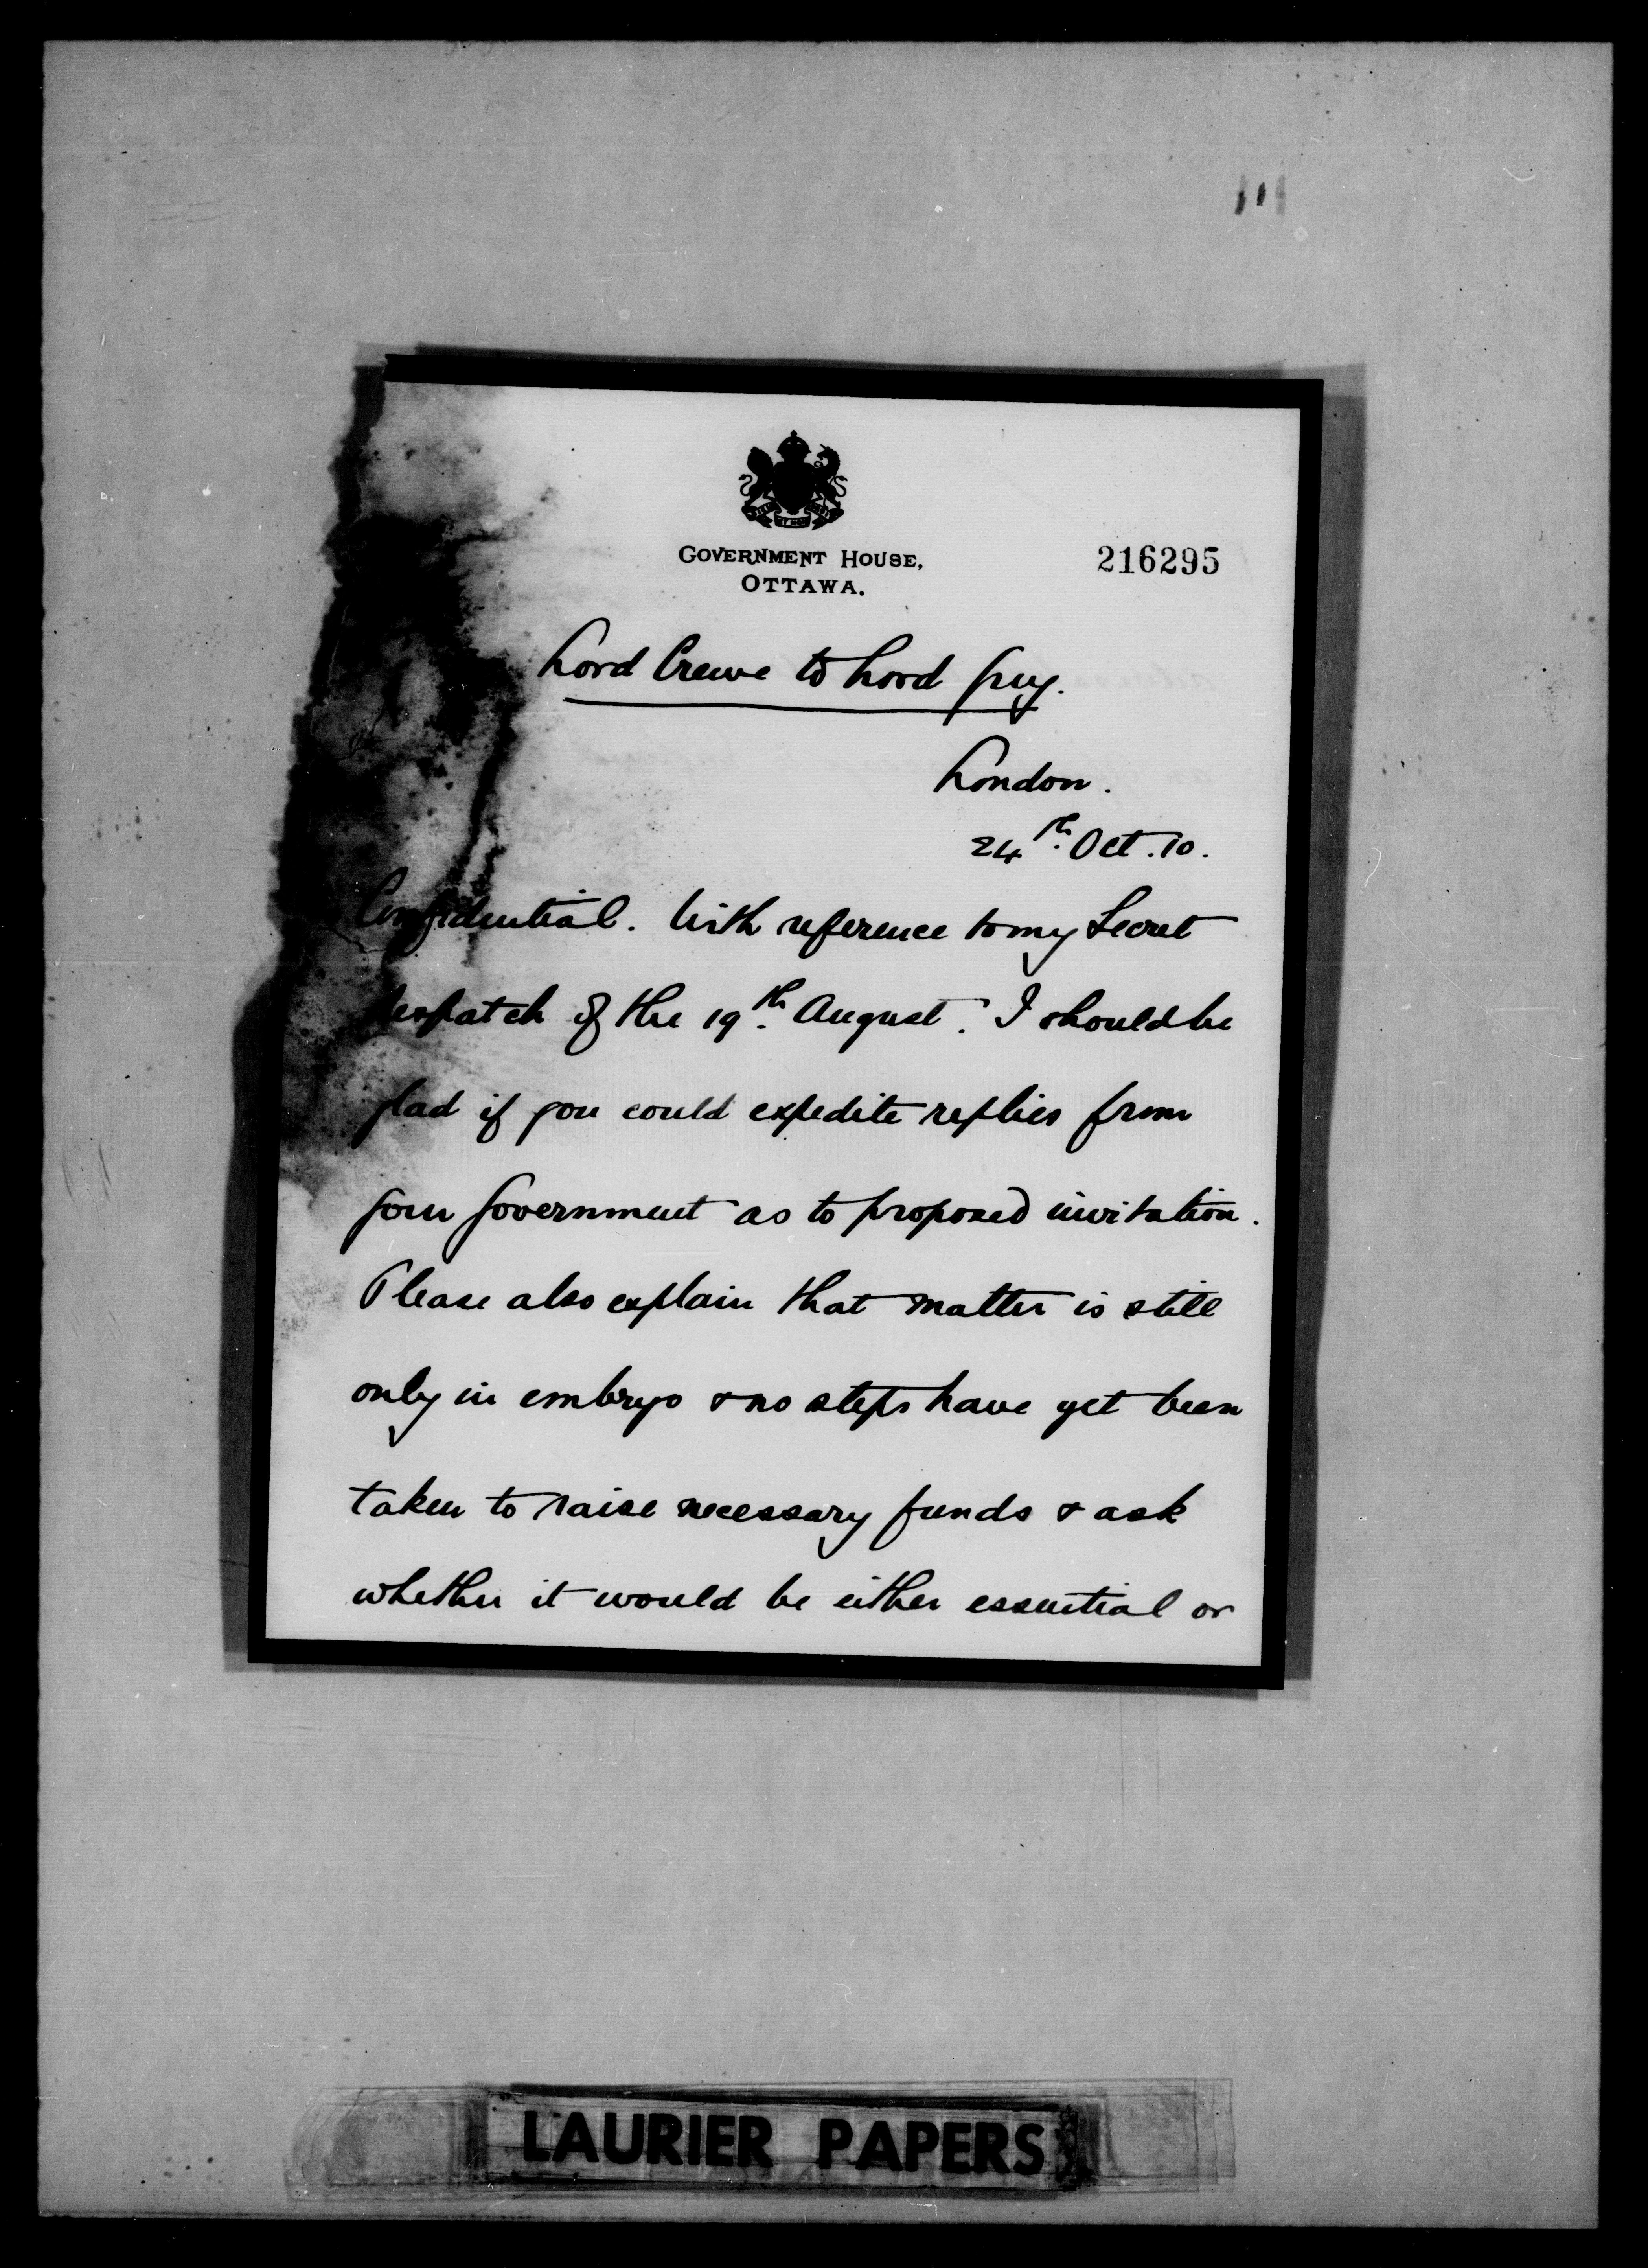 GOVERNMENT HOUSE,
OTTAWA.
216295
Lord Crewe to Lord Grey.
London.
24th Oct. 10.
Confidential. With reference to my Secret
despatch of the 19th August. I should be
glad if you could expedite replies from
your Government as to proposed invitation.
Please also explain that matter is still
only in embryo & no steps have yet been
taken to raise necessary funds & ask
whether it would be either essential or
LAURIER PAPERS